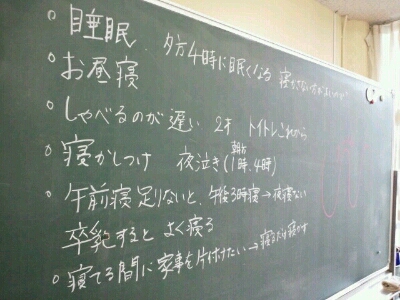 ○ 睡眠 夕方4時に眠くなる 寝かさない方がよいのか?
○ お昼寝
○ しゃべるのが遅い 2才 トイトレこれから
○ 寝かしつけ 夜泣き(朝方1時、4時)
○ 午前寝足りないと、午後3時寝→夜寝ない
卒乳するとよく寝る
○ 寝てる間に家事を片付けたい→寝るだけ寝かす